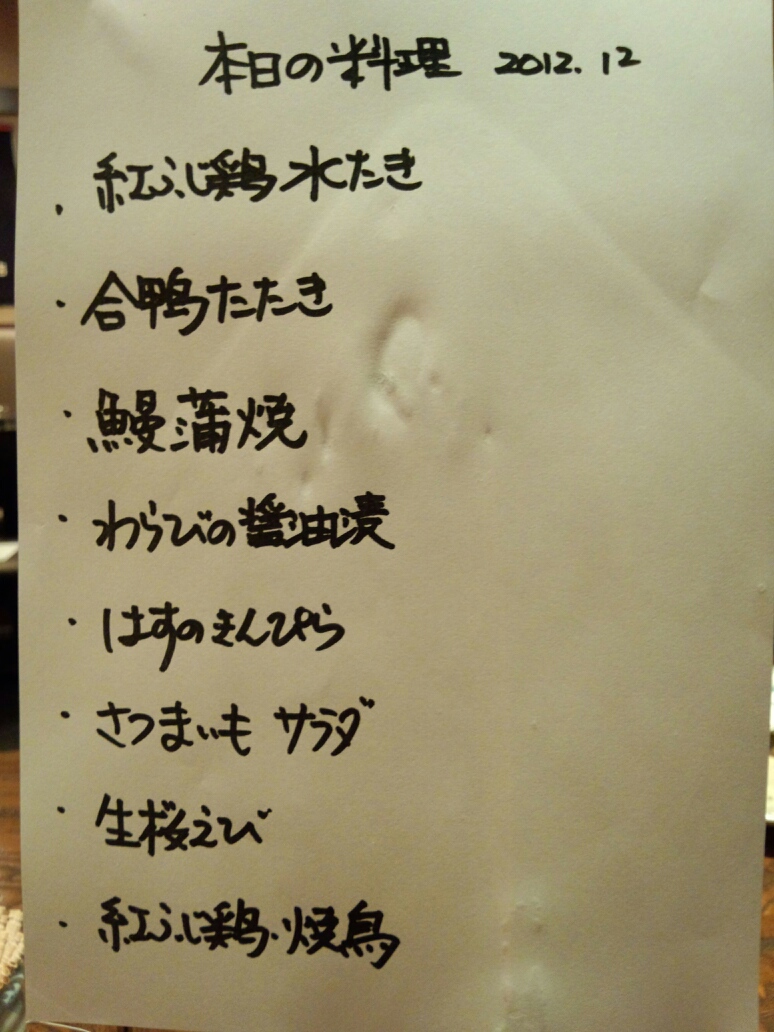 本日の料理 2012.12
・紅ふじ鶏 水たき
・合鴨たたき
・鰻蒲焼
・わらびの醤油漬
・はすのきんぴら
・さつまいも サラダ
・生桜えび
・紅ふじ鶏・焼鳥